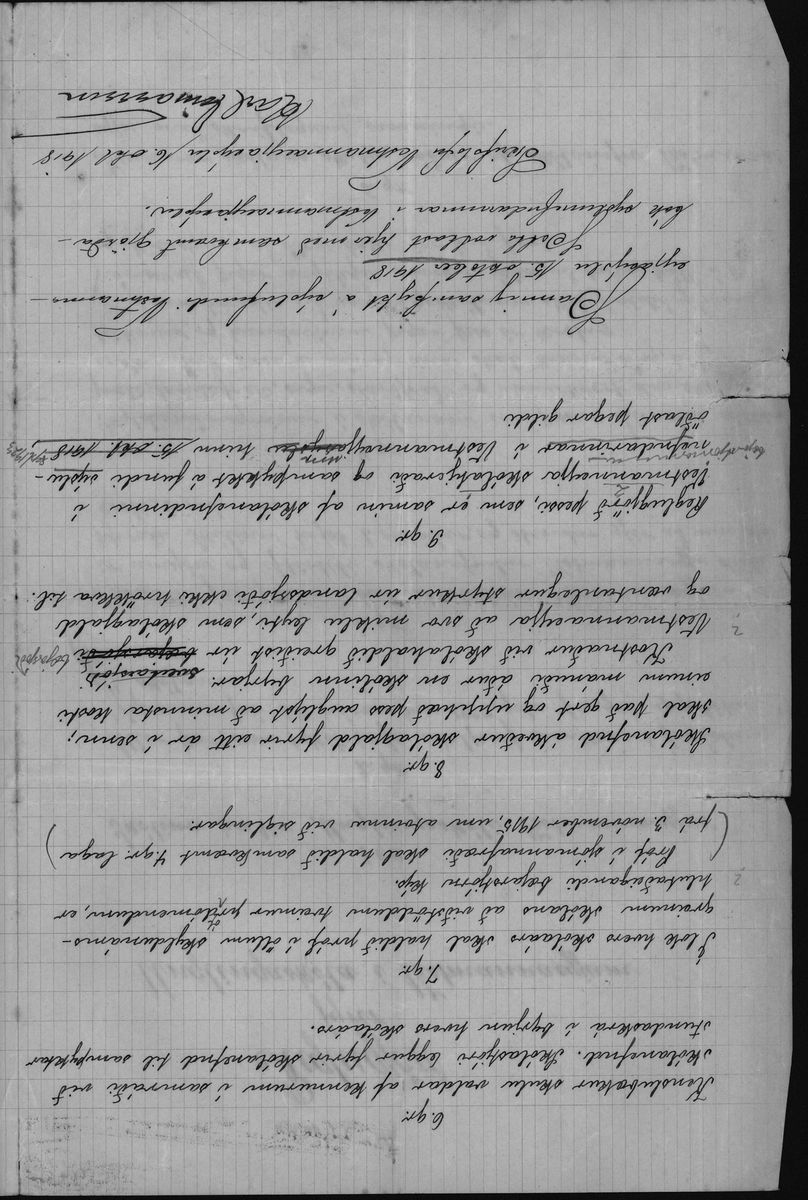 6. gr.
Kenslubækur skulu valdar af kennurum í samráði við
skólanefnd. Skólastjóri leggur fyrir skólanefnd til samþyktar
stundaskrá í byrjun hvers skólaárs.
7. gr.
Í lok hvers skólaárs skal haldið próf í öllum skyldunáms-
greinum skólans að viðstöddum tveimur prófdómendum, er
hlutaðeigandi bæjarstjórn kýs.
Próf í sjómannafræði skal haldið samkvæmt 7. gr. laga
(frá 3. nóvember 1915, um atvinnu við siglingar.)
8. gr.
Skólanefnd ákveður skólagjald fyrir eitt ár í senn;
skal það gert og upphæð þess auglýst að minnsta kosti
einum mánuði áður en skólinn byrjar.
Kostnaður við skólahaldið greiðist úr sveitarsjóði bæjarsjóði
Vestmannaeyja að svo miklu leyti, sem skólagjald
og væntanlegur styrkur úr landssjóði ekki hrökkva til.
9. gr.
Reglugjörð þessi, sem er samin af skólanefndinni í
Vestmannaeyja skólahjeraði og samþykt á fundi sýslu-
nefndarinnar í Vestmannaeyjasýslu hinn 15. okt. 1918,
öðlast þegar gildi
Þannig samþykt á sýslufundi Vestmanna-
eyjasýslu 15. október 1918
Þetta vottast hjer með samkvæmt gjörða-
bók sýslunefndarinnar í Vestmannaeyjasýslu.
Skrifstofu Vestmannaeyjasýslu, 16. okt. 1918
Karl Einarsson